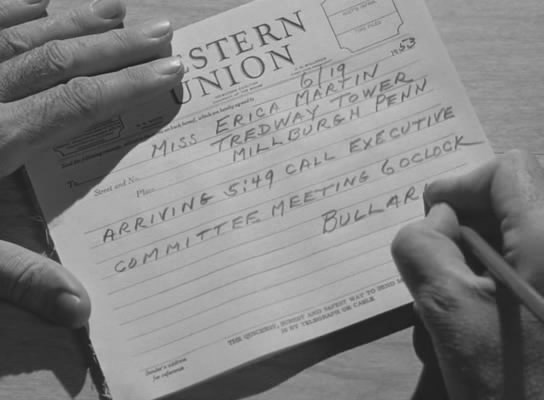 WESTERN
UNION
1953
6/19
Miss ERICA MARTIN
To
Street and No.
TREDWAY TOWER
Place
MILLBURGH PENN
ARRIVING 5:49 CALL EXECUTIVE
COMMITTEE MEETING 6 OCLOCK
BULLAR
THE QUICKEST, SUREST AND SAFEST WAY TO SEND M
IS BY TELEGRAPH OR CABLE
Sender's address
for reference